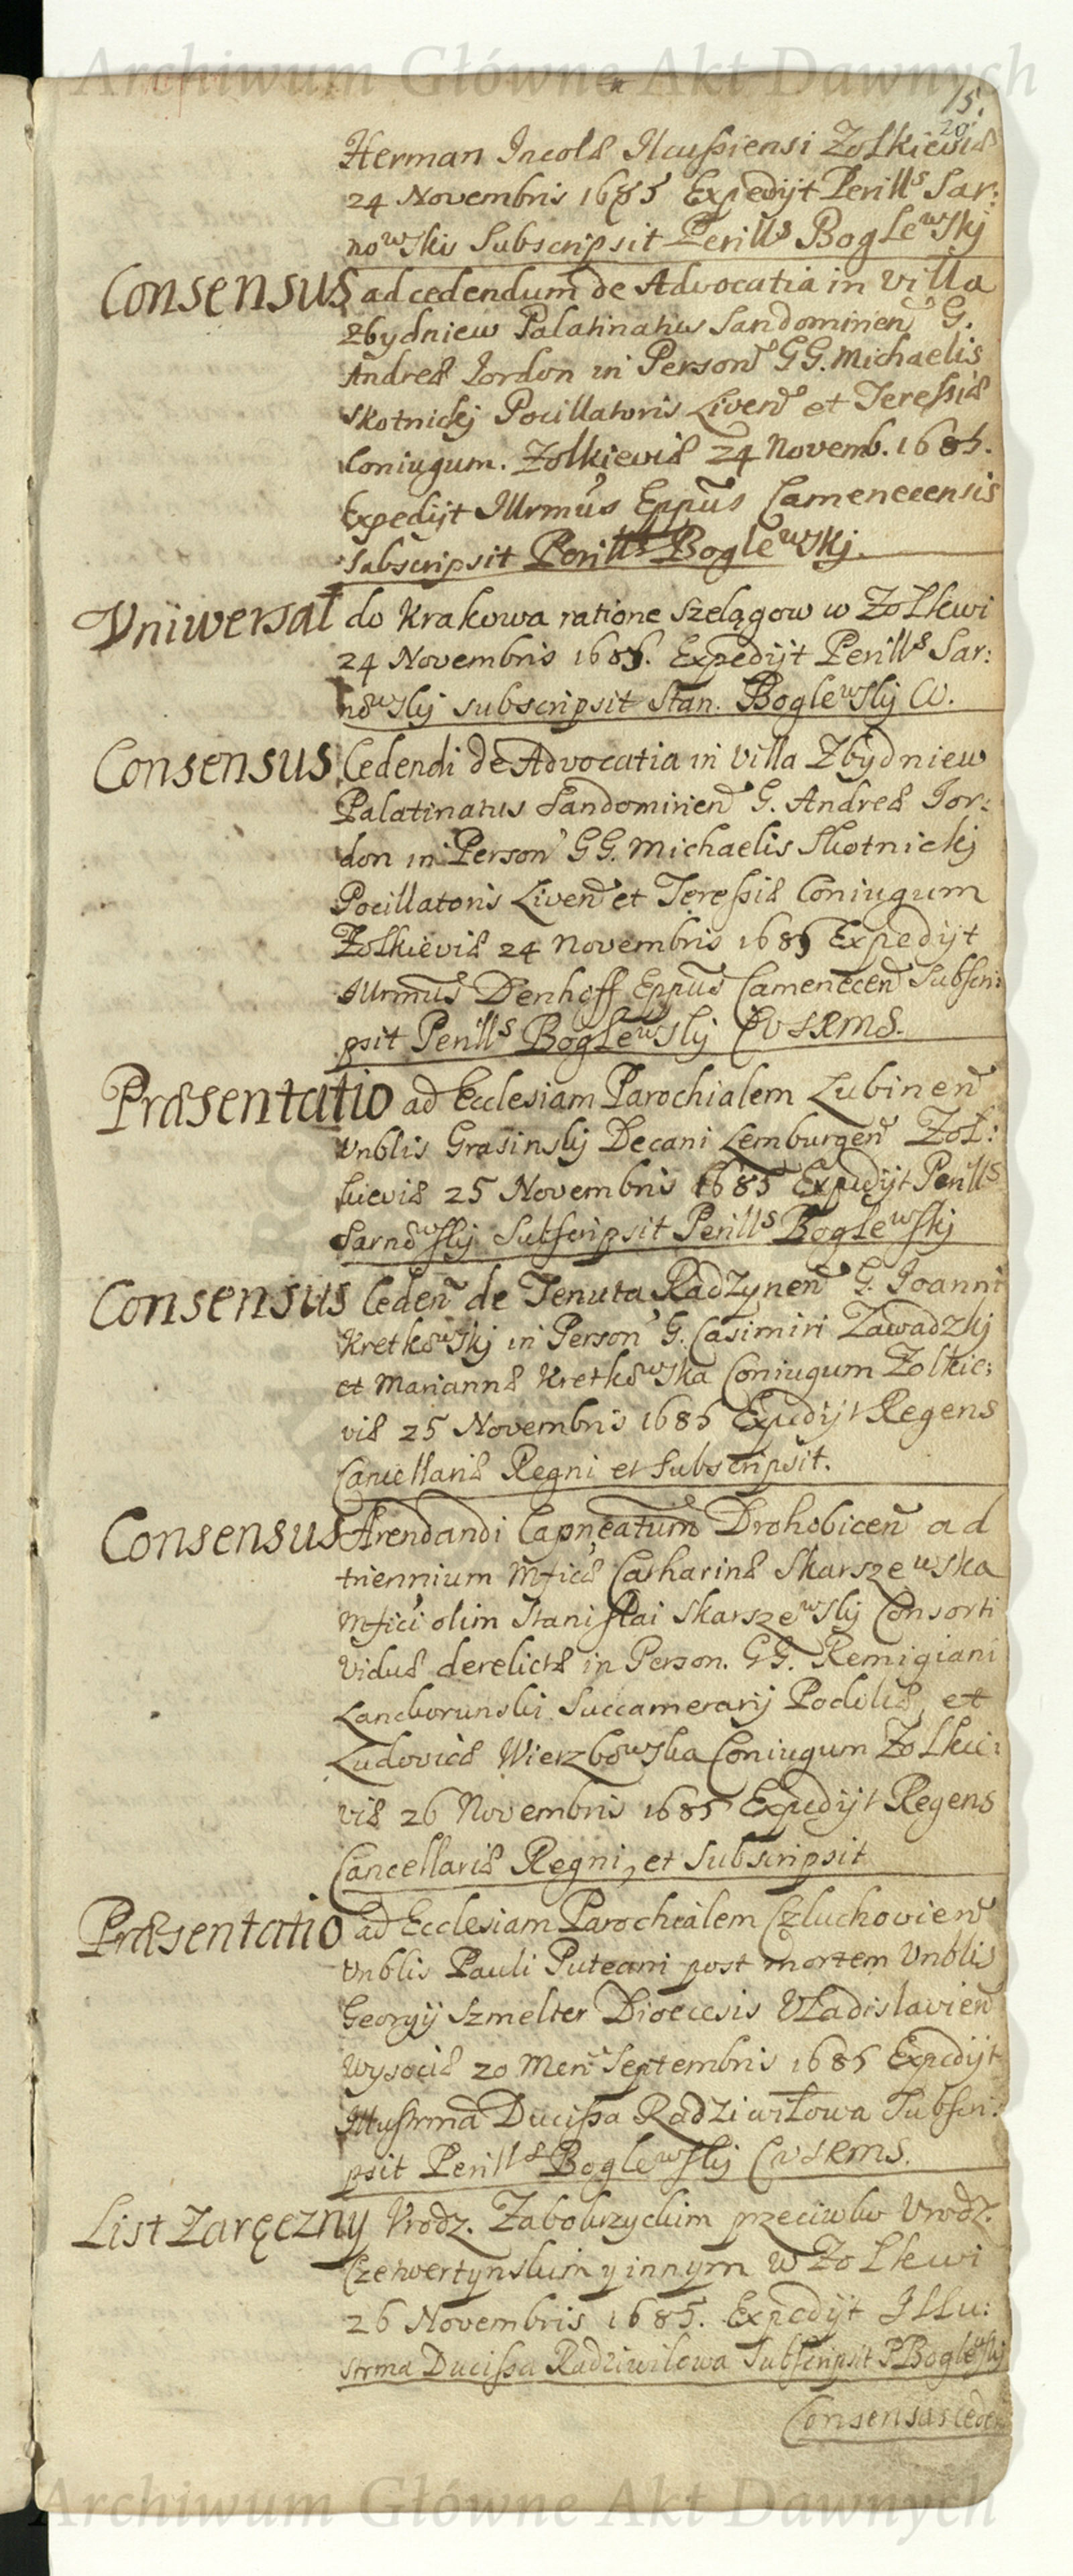 Archiwum Główne Akt Dawnych
15.
20
Herman Incolæ Ilcussiensi Zołkieviæ
24 Novembris 1685 Expedijt Perill͠s Sar:
nowski Subscripsit Perill͠s Boglewskj
Consensus ad cedendum de Advocatia in villa
Zbydniew Palatinatus Sandomirien͠ G.
Andreæ Jordon in Person͠ GG. Michaelis
Skotnickj Pocillatoris Liven͠ et Teressiæ
Coniugum. Zolkieviæ 24 Novemb. 1685.
Expedijt Illrmus Eppus͠ Camenecensis
Subscripsit Perill͠s Boglewskj.
Vniwersał do Krakowa ratione szelągow w Zołkwi
24 Novembris 1685. Expedijt Perill͠s Sar:
nowskj subscripsit Stan. Boglewskj
Consensus Cedendi de Advocatia in villa Zbydniew
Palatinatus Sandomirien͠ G. Andreæ Jor:
don in Person͠ GG. Michaelis Skotnickj
Pocillatoris Liven͠ et Teressiæ Coniugum
Zołkieviæ 24 Novembris 1685 Expedijt
Illrmus͠ Denhoff Eppus͠ Camenecen͠ Subscri:
psit Perill͠s Boglewskj CVSRMS.
Præsentatio ad Ecclesiam Parochialem Lubinen͠
Vnblis Grasinskj Decani Lemburgen͠ Zoł:
kieviæ 25 Novembris 1685 Expedijt Perill͠s
Sarnowskj Subscripsit Perill͠s Boglewskj
Consensus Ceden͠ de Tenuta Radzynen͠ G. Joanni
Kretkowskj in Person͠ G. Casimiri Zawadzkj
et Mariannæ Kretkowska Coniugum Zolkie:
viæ 25 Novembris 1685 Expedijt Regens
Cancellariæ Regni et subscripsit.
Consensus Arendandi Capneatum͠ Drohobicen͠ ad
triennium Mficæ Catharinæ Skarszewska
Mfici olim Stanislai Skarszewskj Consorti
Viduæ derelictæ in Person. GG. Remigiani
Lanckorunski Succamerarij Podoliæ, et
Ludovicæ Wierzbowska Coniugum Zołkie:
viæ 26 Novembris 1685 Expedijt Regens
Cancellariæ Regni, et Subscripsit
Præsentatio ad Ecclesiam Parochialem Czluchovien͠
Vnblis Pauli Puteani post mortem Vnblis
Georgij Szmelter Dioecesis Vladislavien͠
Wysociæ 20 Men͠ Septembris 1685 Expedijt
Illustrma͠ Ducissa Radziwiłowa Subscri:
psit Perill͠s Boglewskj CVSRMS.
List Zaręczny Vrodz. Zabokrzyckim przeciwko Vrodz.
Czetwertynskim y innym w Zołkwi
26 Novembris 1685. Expedijt Illu:
strma Ducissa Radziwilowa Subscripsit P Boglewskj
Consensus ceden
Archiwum Główne Akt Dawnych